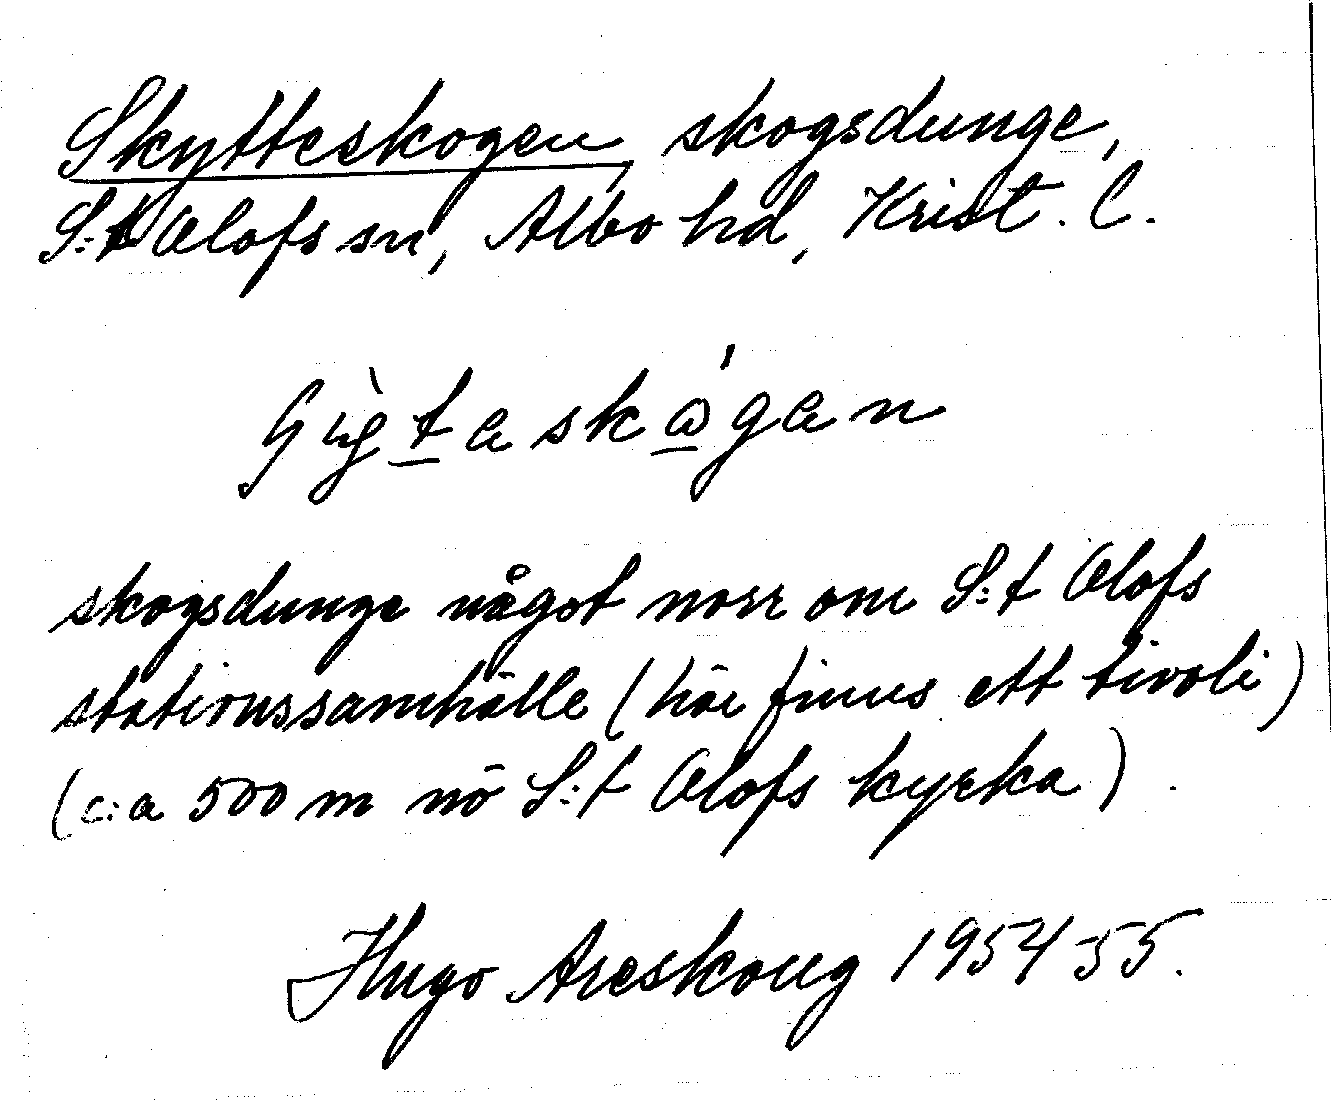 Skytteskogen, skogsdunge,
S:t Olofs sn, Albo hd, Krist. l.
skogsdunge något norr om S:t Olofs
stationssamhälle (här finns ett tivoli)
(c:a 500 m nö S:t Olofs kyrka).
Hugo Areskoug 1954-55.